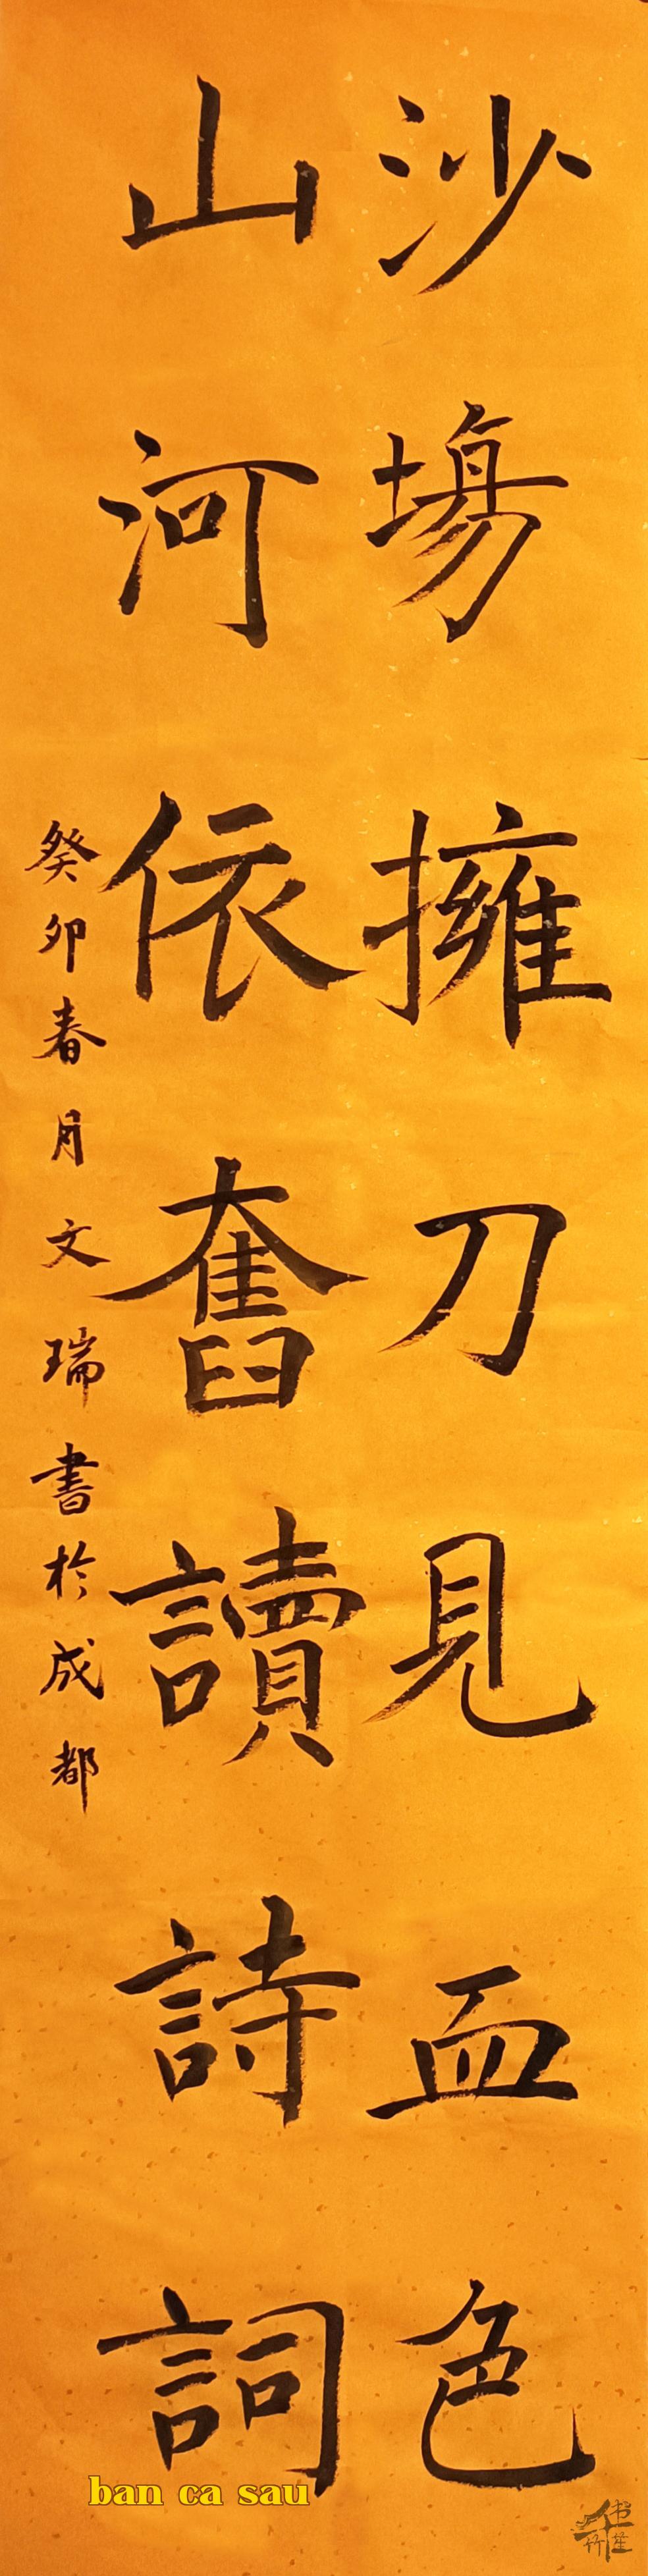 沙場擁刀見血色
山河依舊讀詩詞
癸卯春月文瑞書於成都
ban ca sau